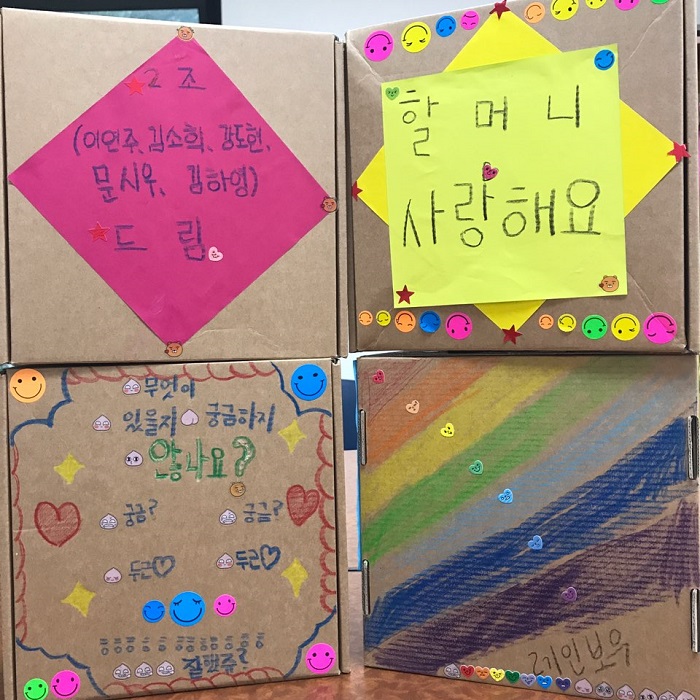 2 조
(이연주, 김소희, 강도현,
문시우, 김하영)
드 림
할 머 니
사랑해요
무엇이
있을지 궁금하지
않나요?
궁금? 궁금?
두근♡ 두근♡
레인보우